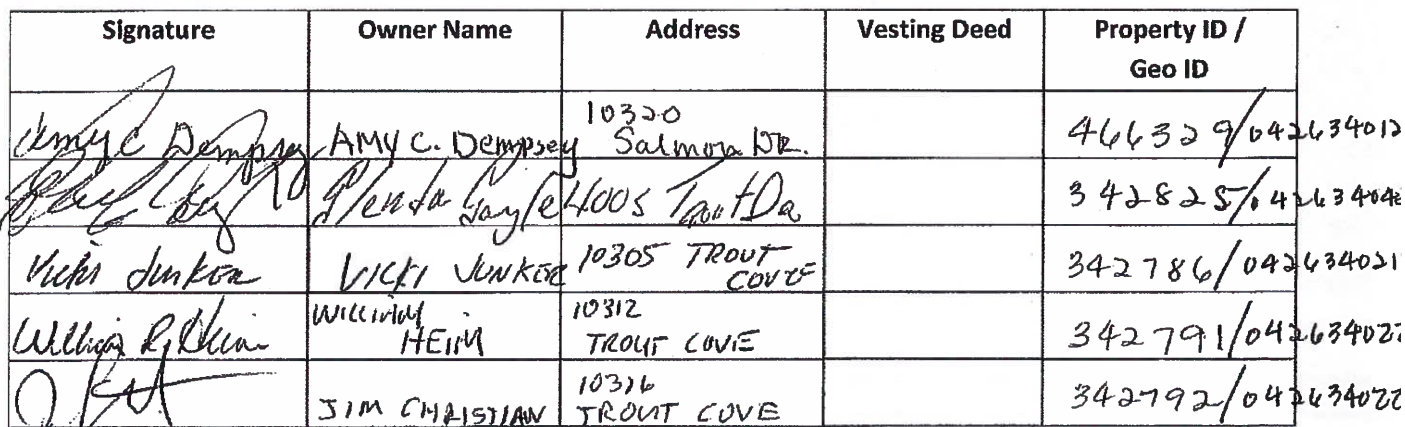 Signature Owner Name Address Vesting Deed Property ID /
Geo ID
Amy C Dempsey AMY C. Dempsey 10320
Salmon DR. 466329/042634012
Glenda Gayle 4005 Trout Dr 342825/042634040
Vicki Junker VICKI JUNKER 10305 TROUT
COVE 342786/042634021
William R. Heim WILLIAM
HEIM 10312
TROUT COVE 342791/042634022
JIM CHRISTIAN 10316
TROUT COVE 342792/042634022